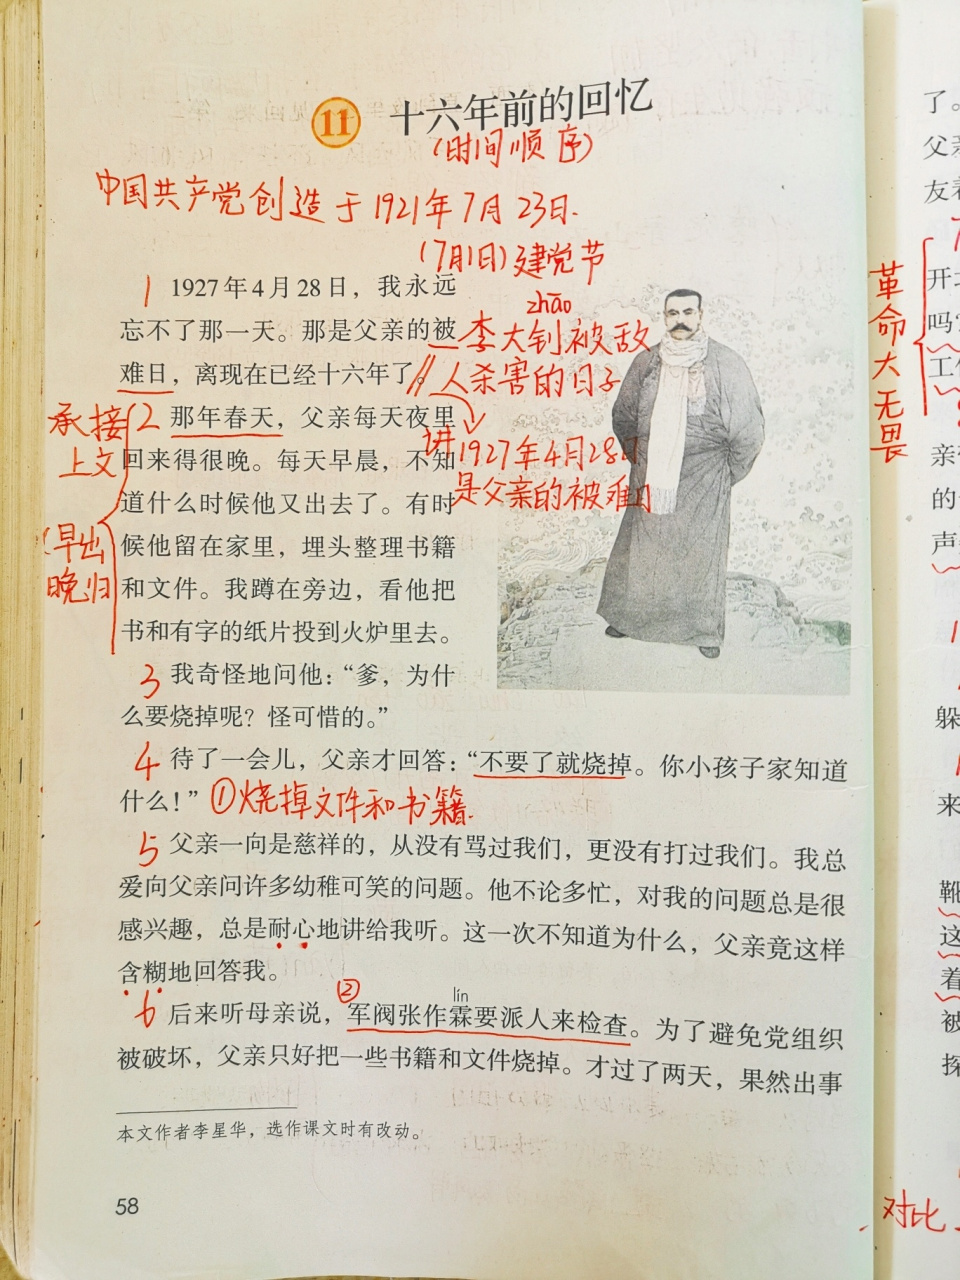 11 十六年前的回忆
(时间顺序)
中国共产党创造于1921年7月23日.
(7月1日)建党节
1 1927年4月28日，我永远
忘不了那一天。那是父亲的被
难日，离现在已经十六年了。
zhāo
李大钊被敌
人杀害的日子
讲1927年4月28日
是父亲的被难日
承接
上文
(早出
晚归
2 那年春天，父亲每天夜里
回来得很晚。每天早晨，不知
道什么时候他又出去了。有时
候他留在家里，埋头整理书籍
和文件。我蹲在旁边，看他把
书和有字的纸片投到火炉里去。
3 我奇怪地问他：“爹，为什
么要烧掉呢？怪可惜的。”
4 待了一会儿，父亲才回答：“不要了就烧掉。你小孩子家知道
什么！” ①烧掉文件和书籍.
5 父亲一向是慈祥的，从没有骂过我们，更没有打过我们。我总
爱向父亲问许多幼稚可笑的问题。他不论多忙，对我的问题总是很
感兴趣，总是耐心地讲给我听。这一次不知道为什么，父亲竟这样
含糊地回答我。
② lín
6 后来听母亲说，军阀张作霖要派人来检查。为了避免党组织
被破坏，父亲只好把一些书籍和文件烧掉。才过了两天，果然出事
本文作者李星华，选作课文时有改动。
58
了。
父亲
友着
革命大无畏
开
吗
工作
亲
的
声
躲
来
靴
这
着
被
探
对比